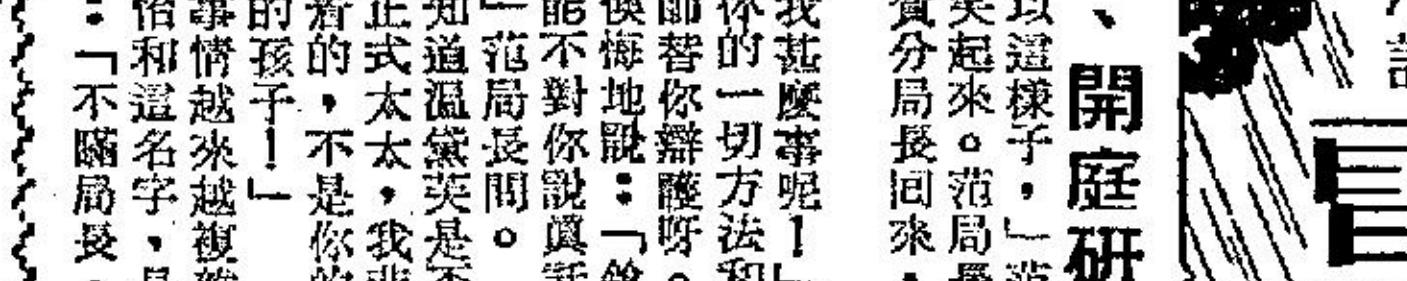 、開庭研
以這樣子，」范
笑起來。范局長
賓分局長回來，
我甚麼事呢！」
你的一切方法和
師替你辯護呀。
悔地說：「
能不對你說真話
」范局長問。
知道溫黛英是不
正式太太，我
着的，不是你的
的孩子！」
事情越來越複雜
怡和這名字，是
：「不瞞局長，